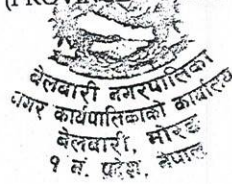 (PROVIN
बेलवारी नगरपालिका
नगर कार्यपालिकाको कार्यालय
बेलवारी, मोरङ
१ नं. प्रदेश, नेपाल